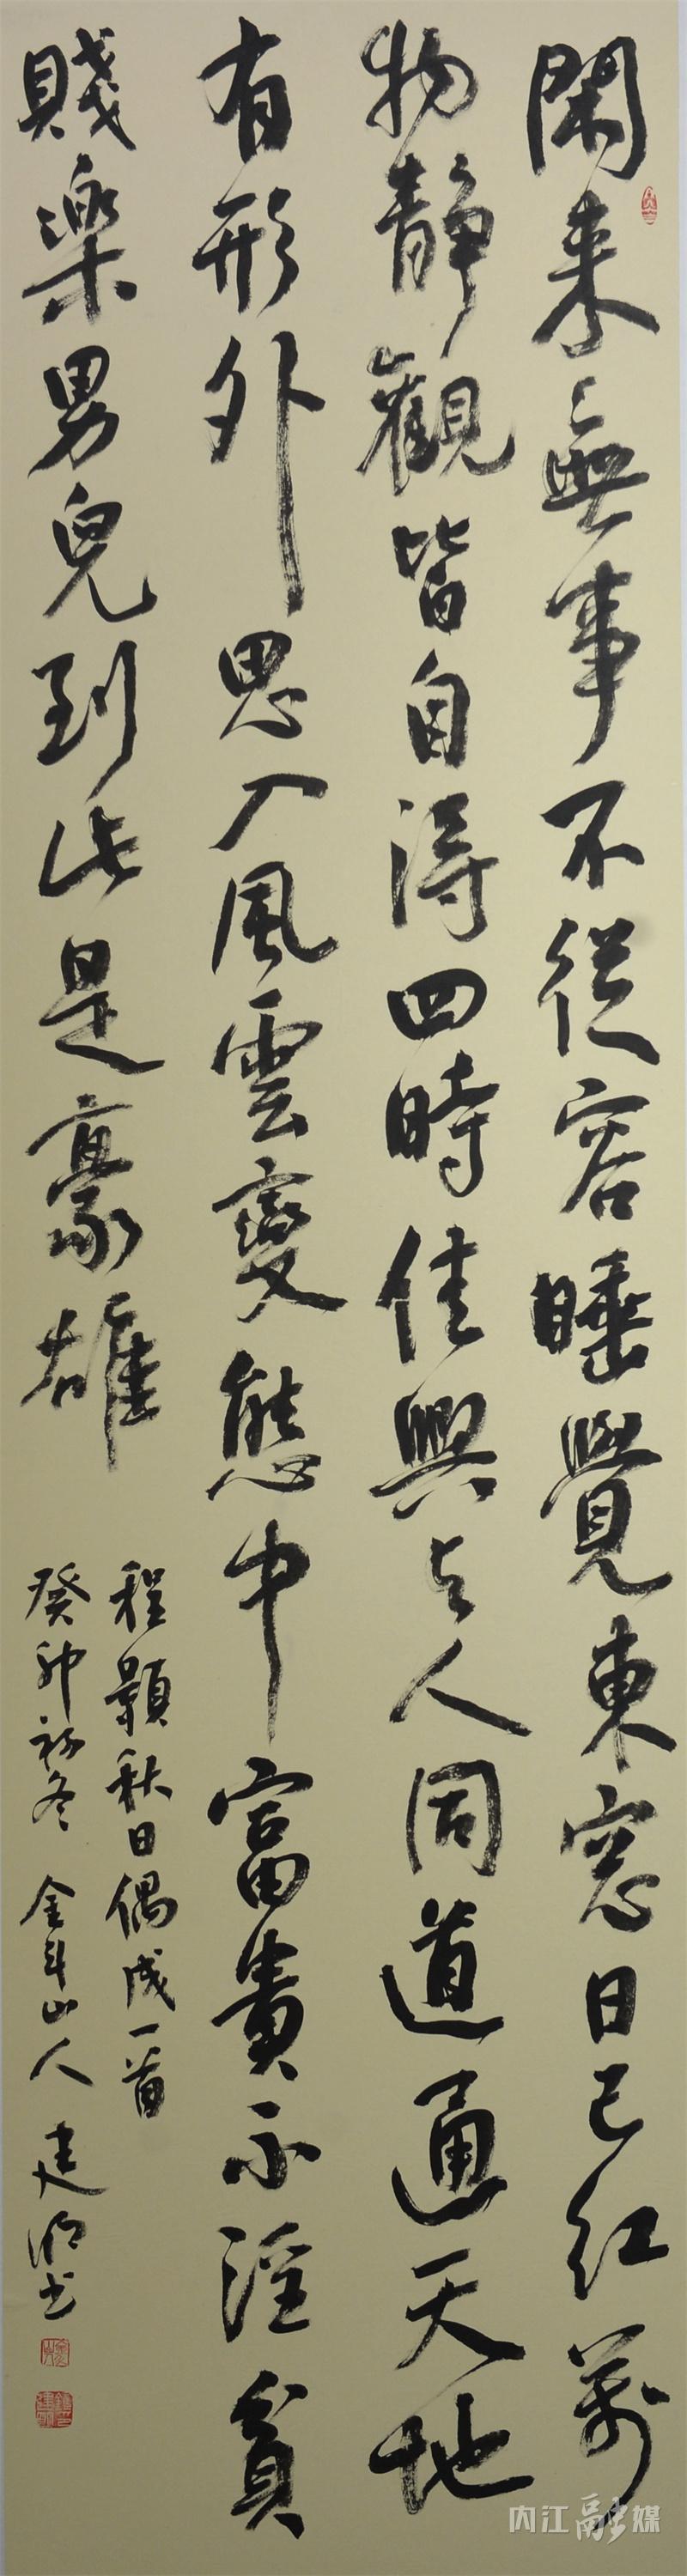 閑来無事不從容睡覺東窓日已紅萬
物静觀皆自得四時佳興与人同道通天地
有形外思入風雲變態中富貴不淫貧
賤樂男兒到此是豪雄
程顥秋日偶成一首
癸卯初冬 金斗山人 建明书
内江融媒